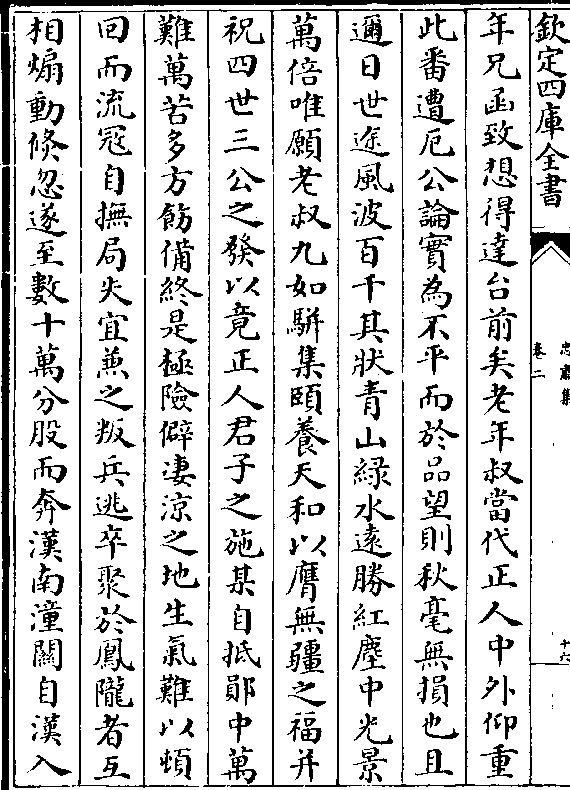 欽定四庫全書
忠肅集
卷二
十六
年兄函致想得達台前矣老年叔當代正人中外仰重
此番遭厄公論實為不平而於品望則秋毫無損也且
邇日世途風波百千其狀青山綠水遠勝紅塵中光景
萬倍唯願老叔九如駢集頤養天和以膺無疆之福并
祝四世三公之發以竟正人君子之施某自抵鄖中萬
難萬苦多方飭備終是極險僻凄涼之地生氣難以頓
回而流冦自撫局失宜兼之叛兵逃卒聚於鳳隴者互
相煽動倏忽遂至數十萬分股而奔漢南潼關自漢入